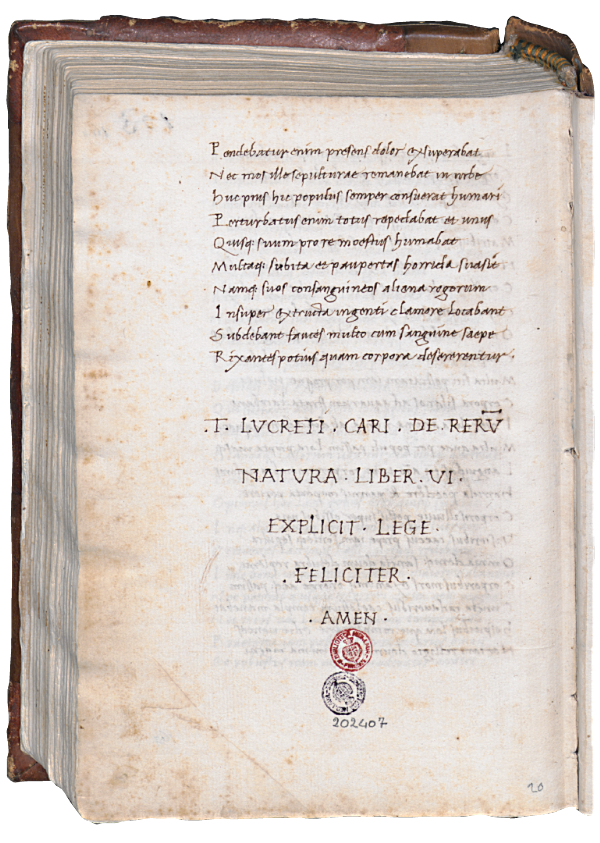 Pendebatur enim presens dolor & superabat
Nec mos ille sepulturae remanebat in urbe
Huc prius hic populus semper consuerat humari
Perturbatus enim totus repedabat et unus
Quisq; suum pro re moestus humabat
Multaq; subita et paupertas horrida suasit
Namq; suos consanguineos aliena rogorum
Insuper extructa ingenti clamore locabant
Subdebant fauces multo cum sanguine saepe
Rixantes potius quam corpora desererentur.
.T. LVCRETI . CARI . DE . RERV̄
NATVRA . LIBER . VI .
EXPLICIT . LEGE .
. FELICITER .
. AMEN .
202407
20